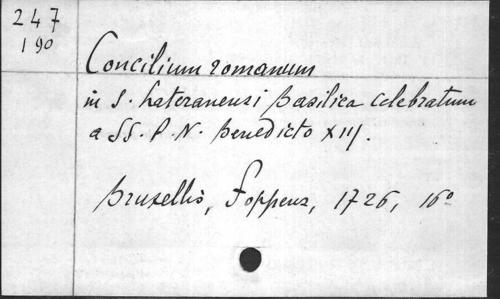 247
190
Concilium romanum
in S. Lateranensi Basilica celebratum
a SS. P. N. Benedicto XIII.
Bruxellis, Foppens, 1726, 16º